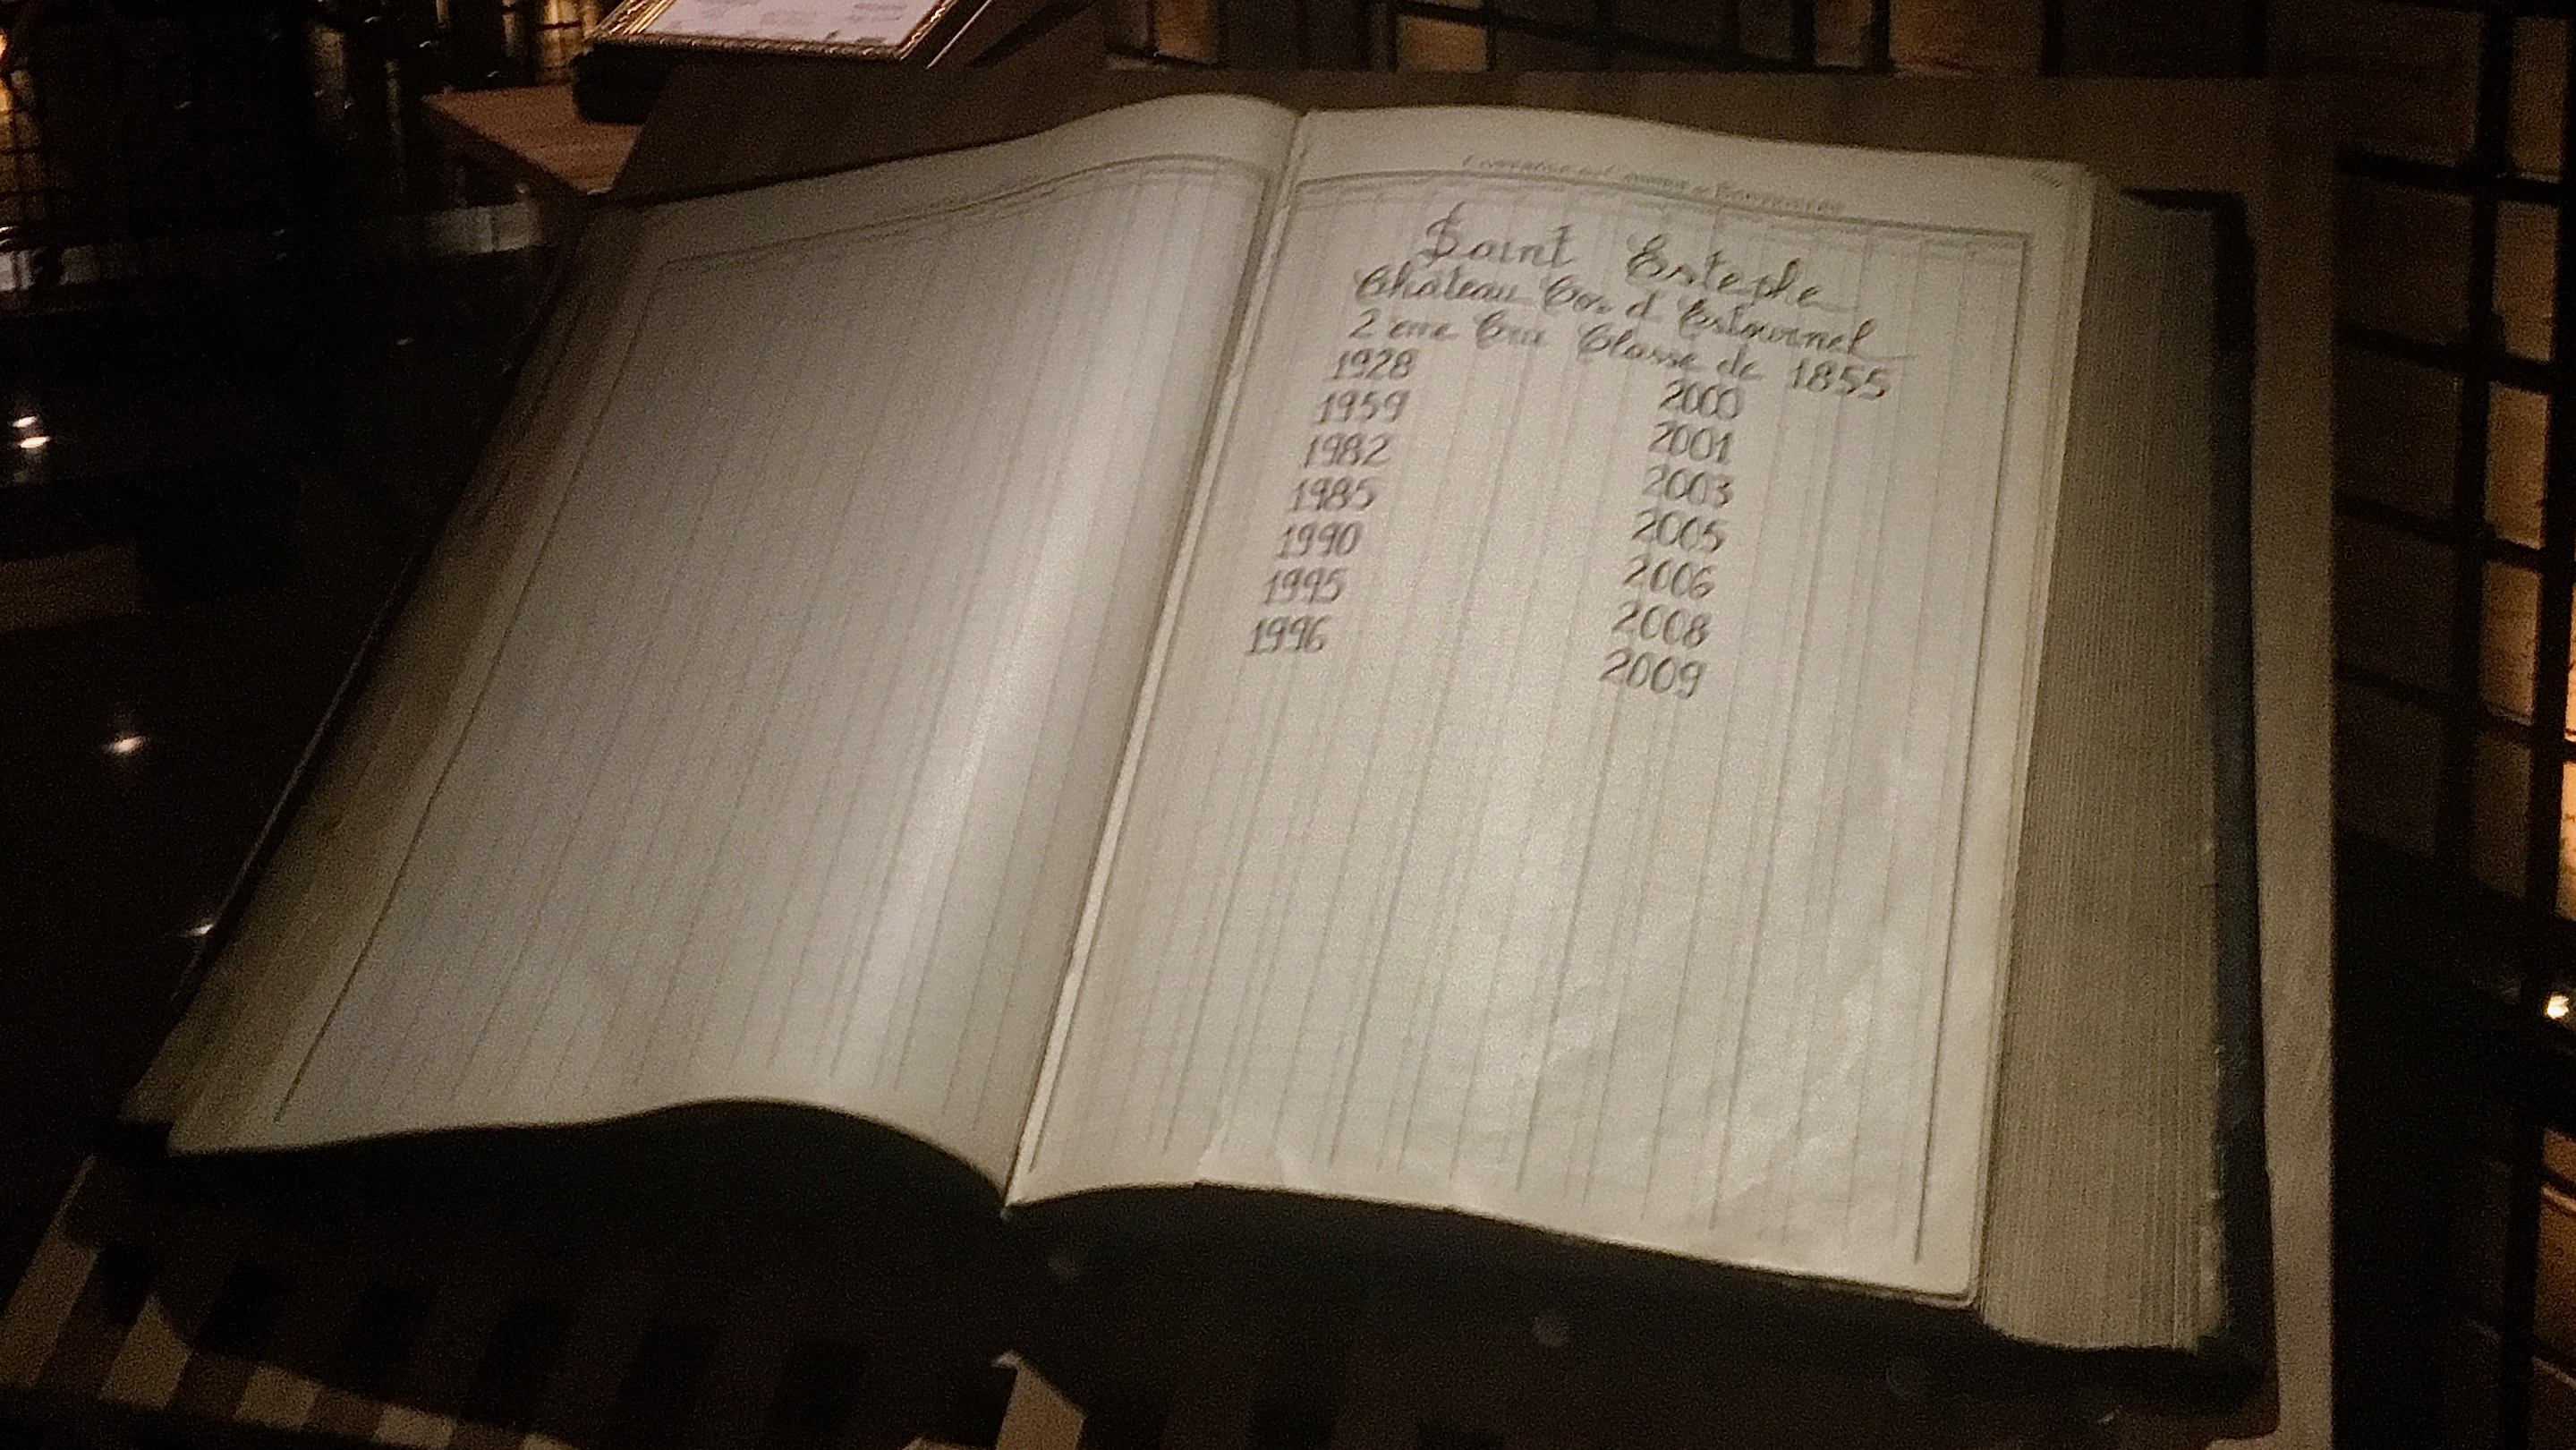 Saint Estephe
Château Cos d Estournel
2 eme Cru Classe de 1855
1928
1959
1982
1985
1990
1995
1996
2000
2001
2003
2005
2006
2008
2009